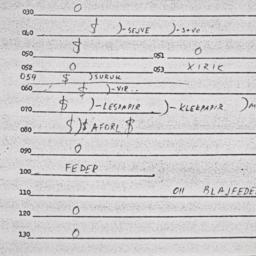 030 0
040 $ )-SEJVE )-S+VO
050 $ 051 0
052 0 053 XIRIK
059 $ )SURUK
060 $ )-VIR..
070 $ )-LESPAPIR )-KLEKPAPIR )
080 $)$AFORL $
090 0
100 FEDER
110 011 BLAJFEDE
120 0
130 0